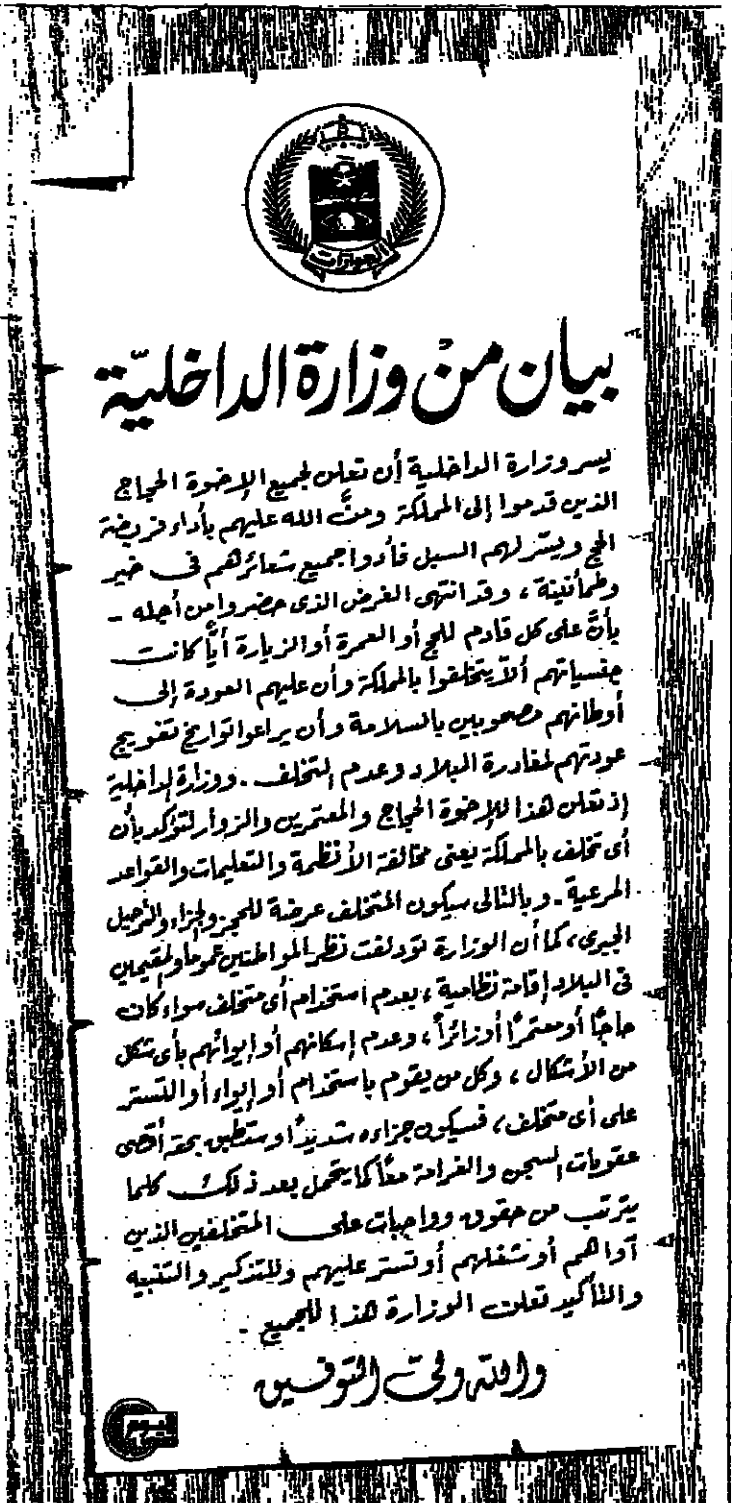 الجوازات
بيان من وزارة الداخليّة
يسر وزارة الداخلية أن تعلن لجميع الإخوة الحجاج
الذين قدموا إلى المملكة ومنَّ الله عليهم بأداء فريضة
الحج ويسّر لهم السبل فأدوا جميع شعائرهم فى خير
وطمأنينة ، وقد انتهى الغرض الذى حضروا من أجله -
بأنَّ على كل قادم للحج أو العمرة أو الزيارة أيًّا كانت
جنسياتهم ألاّ يتخلفوا بالمملكة وأن عليهم العودة إلى
أوطانهم مصحوبين بالسلامة وأن يراعوا تواريخ تفويج
عودتهم لمغادرة البلاد وعدم التخلف . ووزارة الداخلية
إذ تعلن هذا للإخوة الحجاج والمعتمرين والزوار لتؤكد بأن
أى تخلف بالمملكة يعنى مخالفة الأنظمة والتعليمات والقواعد
المرعية . وبالتالى سيكون المتخلف عرضة للحجز والجزاء والترحيل
الجبرى ، كما أن الوزارة تود لفت نظر المواطنين عموماً والمقيمين
فى البلاد إقامة نظامية ، بعدم استخدام أى متخلف سواء كان
حاجًا أو معتمرًا أو زائراً ، وعدم إسكانهم أو إيوائهم بأى شكل
من الأشكال ، وكل من يقوم باستخدام أو إيواء أو التستر
على أى متخلف ، فسيكون جزاءه شديدًا وستطبق بحقه أقصى
عقوبات السجن والغرامة معًا كما يتحمل بعد ذلك كلما
يترتب من حقوق وواجبات على المتخلفين الذين
آواهم أو شغلهم أو تستر عليهم وللتذكير والتنبيه
والتأكيد تعلن الوزارة هذا للجميع -
والله ولىّ التوفيق
اليوم